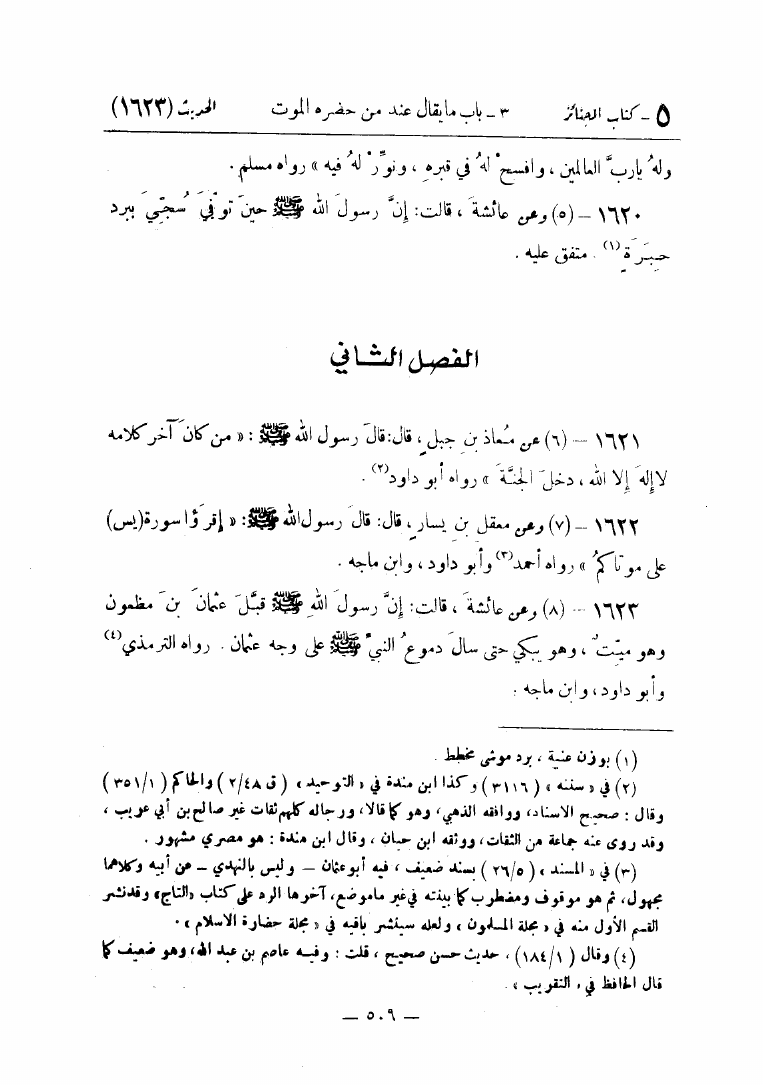 ٥ - كتاب الجنائز ٣ - باب ما يقال عند من حضره الموت الحديث (١٦٢٣)
ولهُ ياربَّ العالمين ، وافسحْ لهُ في قبرِه ، ونوِّرْ لهُ فيه » رواه مسلم .
١٦٢٠ – (٥) وعن عائشةَ ، قالت : إِنَّ رسولَ الله ﷺ حينَ توُفِّيَ سُجِّيَ ببرد
حِبَرَةٍ (١) . متفق عليه .
الفصل الثاني
١٦٢١ – (٦) عن مُعاذ بنِ جبلٍ ، قال : قالَ رسول الله ﷺ : « من كانَ آخر كلامه
لاإِلهَ إِلا الله ، دخلَ الجنَّةَ » رواه أبو داود (٢) .
١٦٢٢ – (٧) وعن معقل بنِ يسارٍ ، قال : قالَ رسولُ الله ﷺ : « إِقرَؤُا سورة (يس)
على موتاكمُ » رواه أحمد (٣) وأبو داود ، وابن ماجه .
١٦٢٣ – (٨) وعن عائشةَ ، قالت : إِنَّ رسولَ اللهِ ﷺ قبَّلَ عثمانَ بنَ مظعون
وهو ميِّتٌ ، وهو يبكي حتى سالَ دموعُ النبيِّ ﷺ على وجه عثمان . رواه الترمذي (٤)
وأبو داود ، وابن ماجه .
(١) بوزن عنبة ، برد موشى مخطط .
(٢) في « سننه » (٣١١٦) وكذا ابن مندة في « التوحيد » (ق ٢/٤٨) والحاكم (٣٥١/١)
وقال : صحيح الاسناد ، ووافقه الذهبي ، وهو كما قالا ، ورجاله كلهم ثقات غير صالح بن أبي عريب ،
وقد روى عنه جماعة من الثقات ، ووثقه ابن حبان ، وقال ابن مندة : هو مصري مشهور .
(٣) في « المسند » (٢٦/٥) بسند ضعيف ، فيه أبو عثمان – وليس بالنهدي – عن أبيه وكلاهما
مجهول ، ثم هو موقوف ومضطرب كما بينته في غير ماموضع ، آخرها الرد على كتاب «التاج» وقد نشر
القسم الأول منه في « مجلة المسلمون » ، ولعله سينشر باقيه في « مجلة حضارة الاسلام » .
(٤) وقال (١٨٤/١) ، حديث حسن صحيح ، قلت : وفيه عاصم بن عبد الله ، وهو ضعيف كما
قال الحافظ في « التقريب » .
— ٥٠٩ —